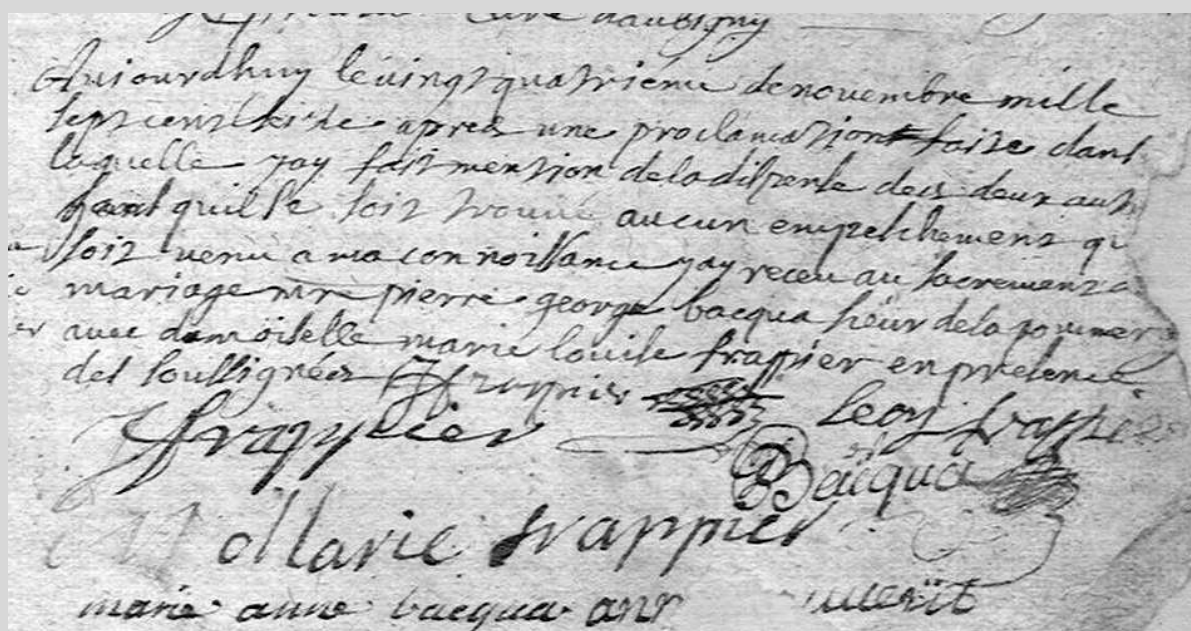 curé daubigny
Aujourdhuy le vingt quatrieme de novembre mille
sept cent seize apres une proclamation faite dans
laquelle jay fait mention de la dispense des deux aut
sans quil se soit trouvé aucun empeschement qi
soit venu a ma connoissance jay receu au sacrement d
mariage mre pierre george bacqua sieur de la pommer
avec damoiselle marie louise frappier en presence
des soussignées F frappier
frappier Leon frappier
Bacqua
Marie frappier
marie anne bacqua ann